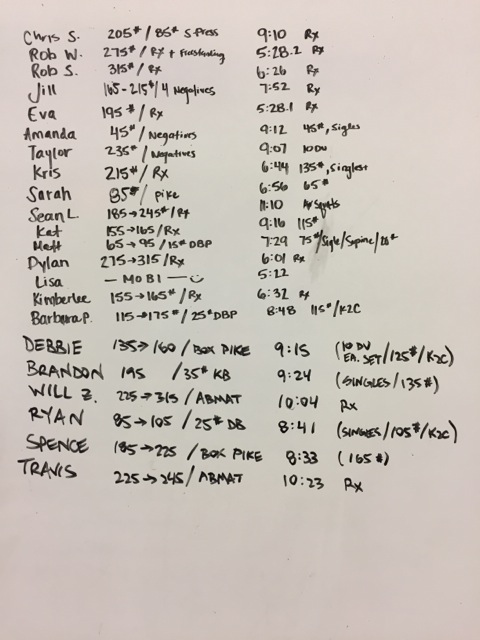 Chris S. 205# / 85# S-Press 9:10 Rx
Rob W. 275# / Rx + Freestanding 5:28.2 Rx
Rob S. 315# / Rx 6:26 Rx
Jill 165-215# / 4 Negatives 7:52 Rx
Eva 195# / Rx 5:28.1 Rx
Amanda 45# / Negatives 9:12 45#, Sigles
Taylor 235# / Negatives 9:07 10 DU
Kris 215# / Rx 6:44 135#, Singles
Sarah 85# / Pike 6:56 65#
Sean L. 185→245# / Rx 11:10 Squats
Kat 155→165 / Rx 9:16 115#
Matt 65→95 / 15# DBP 7:29 75#/Sigle/Supine/20#
Dylan 275→315 / Rx 6:01 Rx
Lisa — MOBI — 5:22
Kimberlee 155→165# / Rx 6:32 Rx
Barbara P. 115→175# / 25# DBP 8:48 115# / K2C
DEBBIE 135→160 / BOX PIKE 9:15 (10 DU EA. SET/125#/K2C)
BRANDON 195 / 35# KB 9:24 (SINGLES / 135#)
WILL Z. 225→315 / ABMAT 10:04 Rx
RYAN 85→105 / 25# DB 8:41 (SINGLES/105#/K2C)
SPENCE 185→225 / BOX PIKE 8:33 (165#)
TRAVIS 225→245 / ABMAT 10:23 Rx